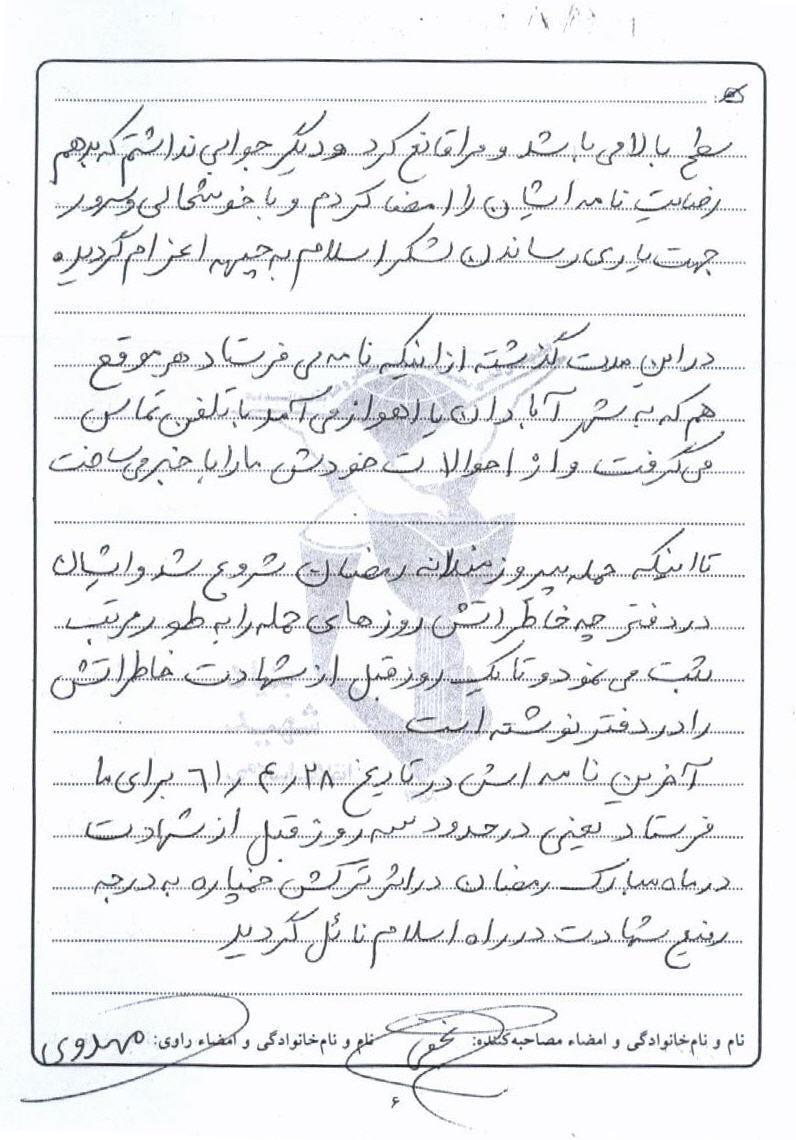 سطح بالا می باشد و مرا قانع کرد و دیگر جوابی نداشتم که بدهم
رضایت نامه ایشان را امضا کردم و با خوشحالی و سرور
جهت یاری رساندن لشکر اسلام به جبهه اعزام گردید.
در این مدت گذشته از اینکه نامه می فرستاد هر موقع
هم که به شهر آبادان یا اهواز می آمد با تلفن تماس
می گرفت و از احوالات خودش ما را با خبر می ساخت
تا اینکه حمله پیروزمندانه رمضان شروع شد و ایشان
در دفترچه خاطراتش روزهای حمله را به طور مرتب
ثبت می نمود و تا یک روز قبل از شهادت خاطراتش
را در دفتر نوشته است
آخرین نامه اش در تاریخ ۶۱/۴/۲۸ برای ما
فرستاد یعنی در حدود سه روز قبل از شهادت
در ماه مبارک رمضان در اثر ترکش خمپاره به درجه
رفیع شهادت در راه اسلام نائل گردید
نام و نام خانوادگی و امضاء مصاحبه کننده: نام و نام خانوادگی و امضاء راوی: مهدوی
۶